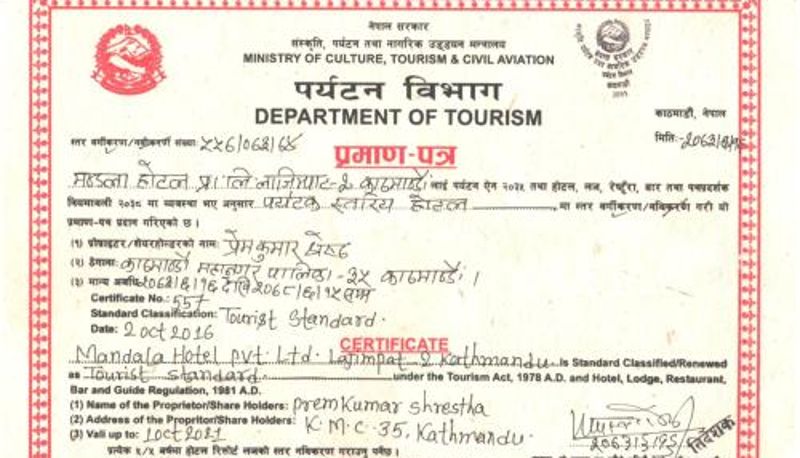 नेपाल सरकार
संस्कृति, पर्यटन तथा नागरिक उड्डयन मन्त्रालय
MINISTRY OF CULTURE, TOURISM & CIVIL AVIATION
पर्यटन विभाग
DEPARTMENT OF TOURISM
काठमाडौं, नेपाल
स्तर वर्गीकरण/नवीकरण संख्या:
मिति:-
प्रमाण-पत्र
होटल प्रा लि लाजिम्पाट-२ काठमाडौं लाई पर्यटन ऐन २०३५ तथा होटल, लज, रेष्टुराँ, बार तथा पथप्रदर्शक
नियमावली २०३८ मा व्यवस्था भए अनुसार पर्यटक स्तरीय होटल मा स्तर वर्गीकरण/नविकरण गरी यो
प्रमाण-पत्र प्रदान गरिएको छ ।
(१) प्रोप्राइटर/शेयरहोल्डरको नाम: प्रेमकुमार श्रेष्ठ
(२) ठेगाना: काठमाण्डौ महानगर पालिका -३५ काठमाण्डौ ।
(३) मान्य अवधि: देखि सम्म
Certificate No.: 557
Standard Classification: Tourist Standard.
Date: 2 Oct 2016
CERTIFICATE
Mandala Hotel pvt. Ltd. Lajimpat 2 Kathmandu. is Standard Classified/Renewed
as Tourist Standard. under the Tourism Act, 1978 A.D. and Hotel, Lodge, Restaurant,
Bar and Guide Regulation, 1981 A.D.
(1) Name of the Proprietor/Share Holders: Prem Kumar Shrestha
(2) Address of the Propritor/Share Holders: K.M.C-35, Kathmandu.
(3) Vali up to: 1 Oct 2021
निर्देशक